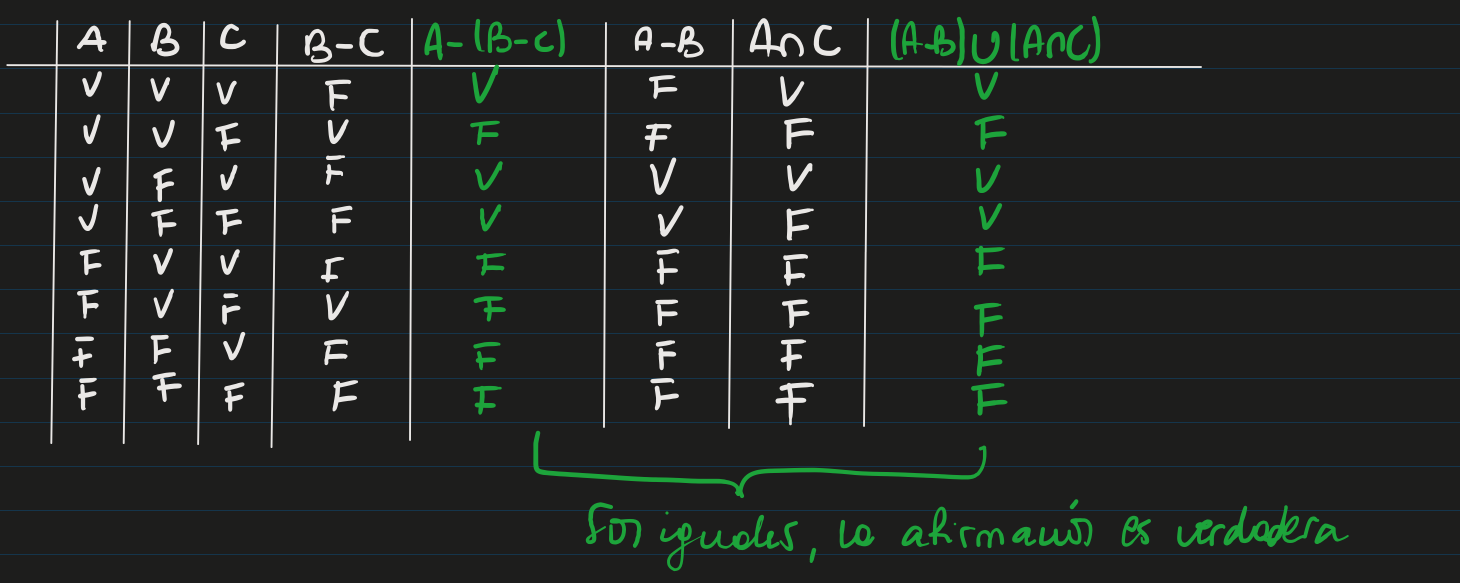 A B C B-C A-(B-C) A-B A∩C (A-B)∪(A∩C)
V V V F V F V V
V V F V F F F F
V F V F V V V V
V F F F V V F V
F V V F F F F F
F V F V F F F F
F F V F F F F F
F F F F F F F F
Son iguales, la afirmación es verdadera